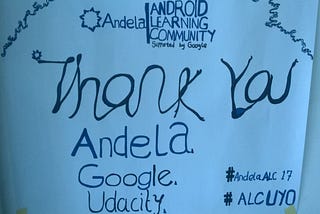 Andela
ANDROID
LEARNING
COMMUNITY
Supported by Google
Thank You
Andela.
Google.
Udacity.
#AndelaALC 17
# ALCUYO